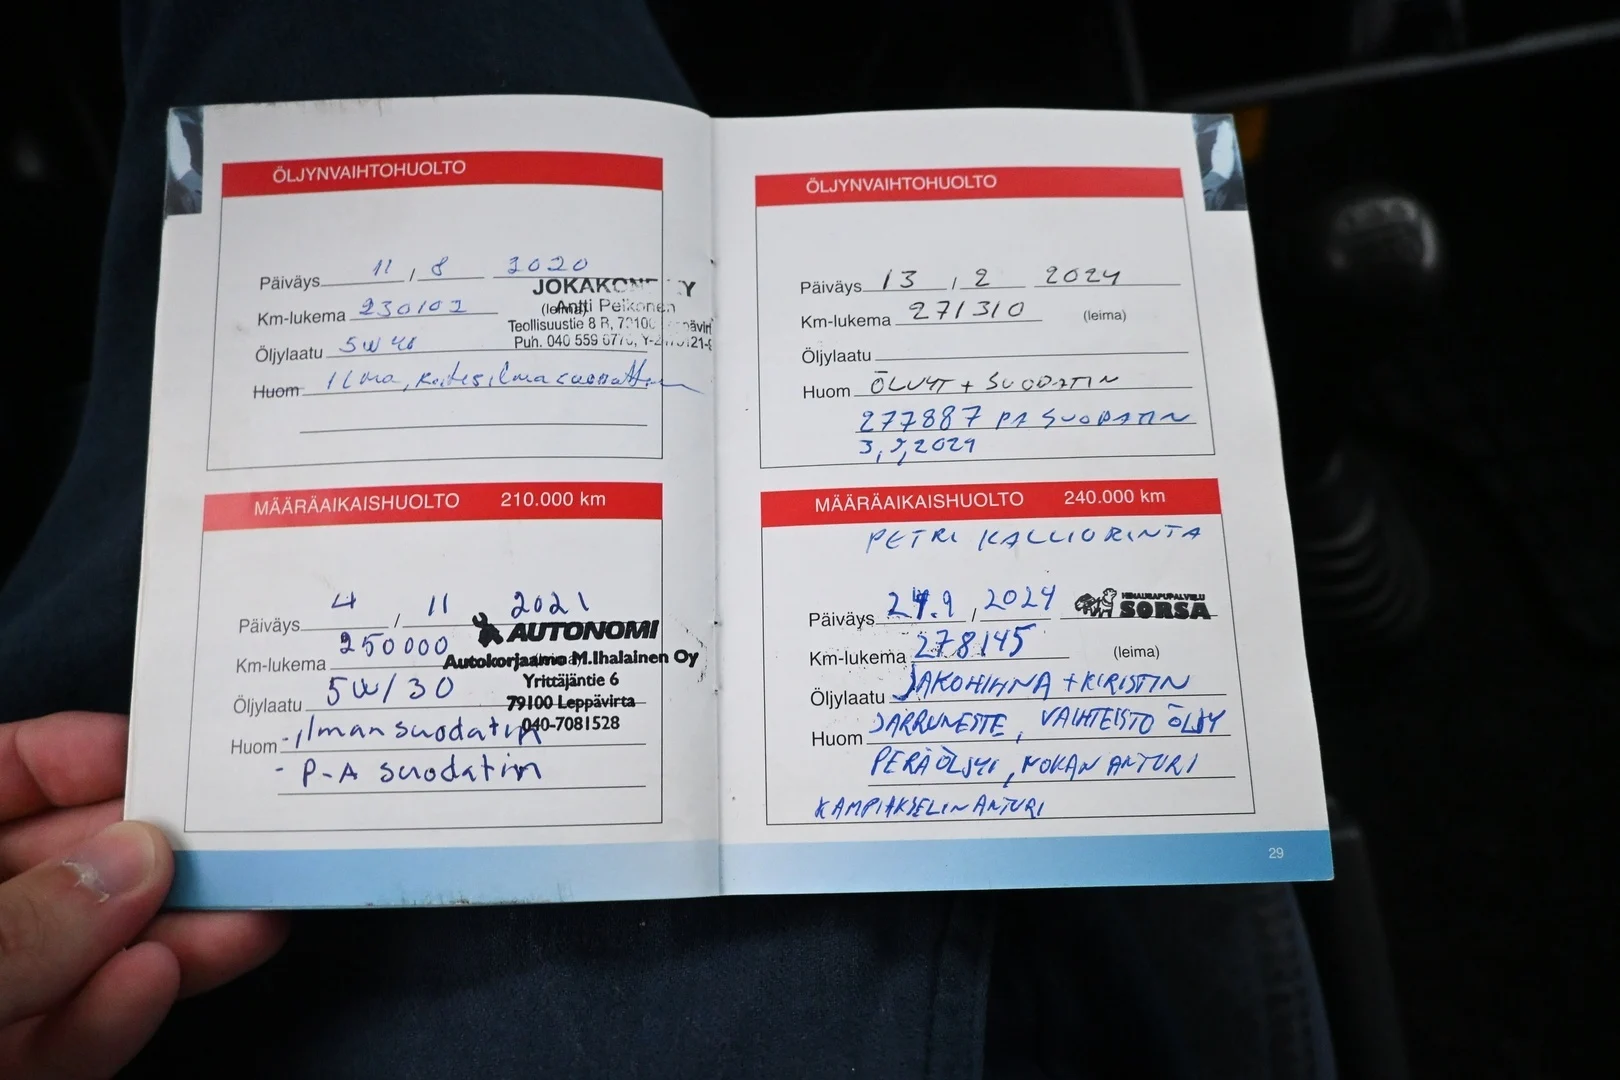 ÖLJYNVAIHTOHUOLTO
Päiväys 11 / 8 2020
JOKAKONE Y
Km-lukema 230102
(leima) Antti Pelkonen
Teollisuustie 8 R,
Öljylaatu 5W40
Puh. 040 559
Huom Ilma,
MÄÄRÄAIKAISHUOLTO 210.000 km
Päiväys 4 / 11 2021
AUTONOMI
Km-lukema 250000
Autokorjaamo M.Ihalainen Oy
Yrittäjäntie 6
Öljylaatu 5W/30
79100 Leppävirta
040-7081528
Huom - ilmansuodatin
- P-A suodatin
ÖLJYNVAIHTOHUOLTO
Päiväys 13 / 2 2024
Km-lukema 271310 (leima)
Öljylaatu
Huom ÖLJYT + SUODATIN
277887 PA SUODATIN
3,5,2024
MÄÄRÄAIKAISHUOLTO 240.000 km
PETRI KALLIORINTA
Päiväys 27.9 / 2024
HINAUSAPUPALVELU
SORSA
Km-lukema 278145 (leima)
Öljylaatu JAKOHIHNA + KIRISTIN
Huom JARRUNESTE, VAIHTEISTO ÖLJY
PERÄÖLJY, NOKAN ANTURI
KAMPIAKSELIN ANTURI
29